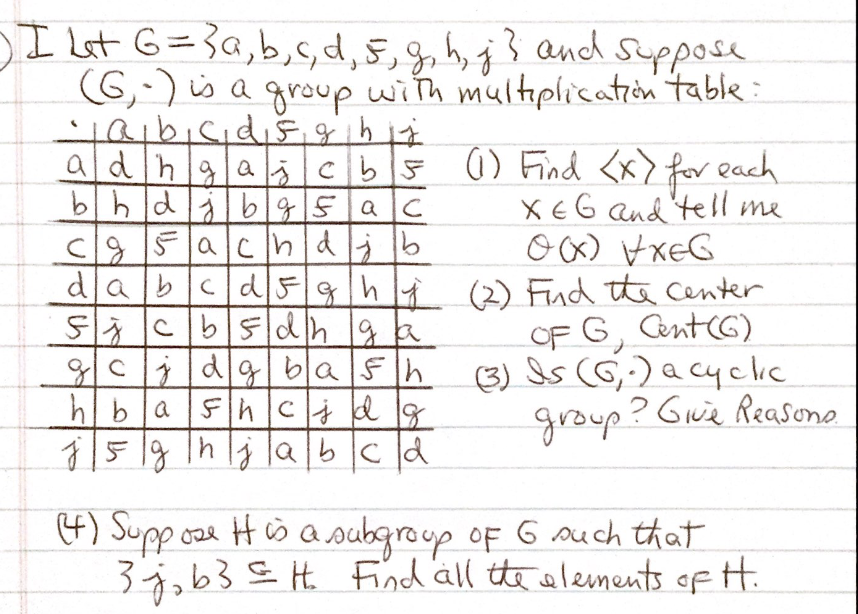 I Let G={a,b,c,d,5,g,h,j} and suppose
(G,·) is a group with multiplication table:
· a b c d 5 g h j
a d h g a j c b 5
b h d j b g 5 a c
c g 5 a c h d j b
d a b c d 5 g h j
5 j c b 5 d h g a
g c j d g b a 5 h
h b a 5 h c j d g
j 5 g h j a b c d
(1) Find <x> for each
x ∈ G and tell me
O(x) ∀x∈G
(2) Find the center
OF G, Cent(G)
(3) Is (G,·) a cyclic
group? Give Reasons.
(4) Suppose H is a subgroup OF G such that
{j,b} ⊆ H. Find all the elements of H.